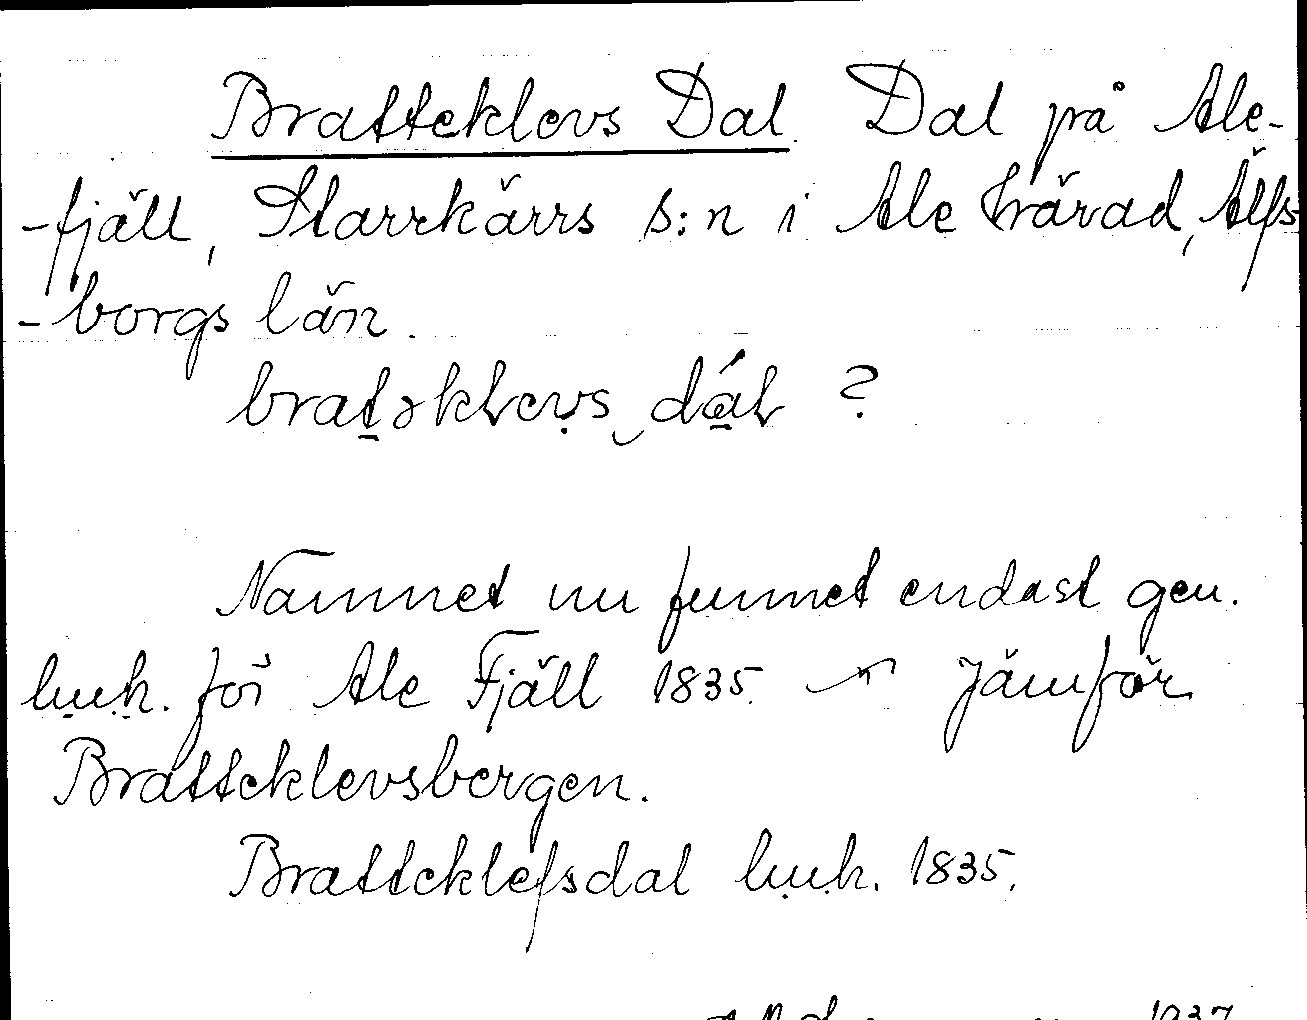 Bratteklevs Dal. Dal på Ale-
-fjäll, Starrkärrs s:n i Ale härad, Älfs-
-borgs län.
bratəklevs dál ?
Namnet nu funnet endast gen.
lmh. för Ale Fjäll 1835. Jämför
Bratteklevsbergen.
Bratteklefsdal lmh. 1835.
1937